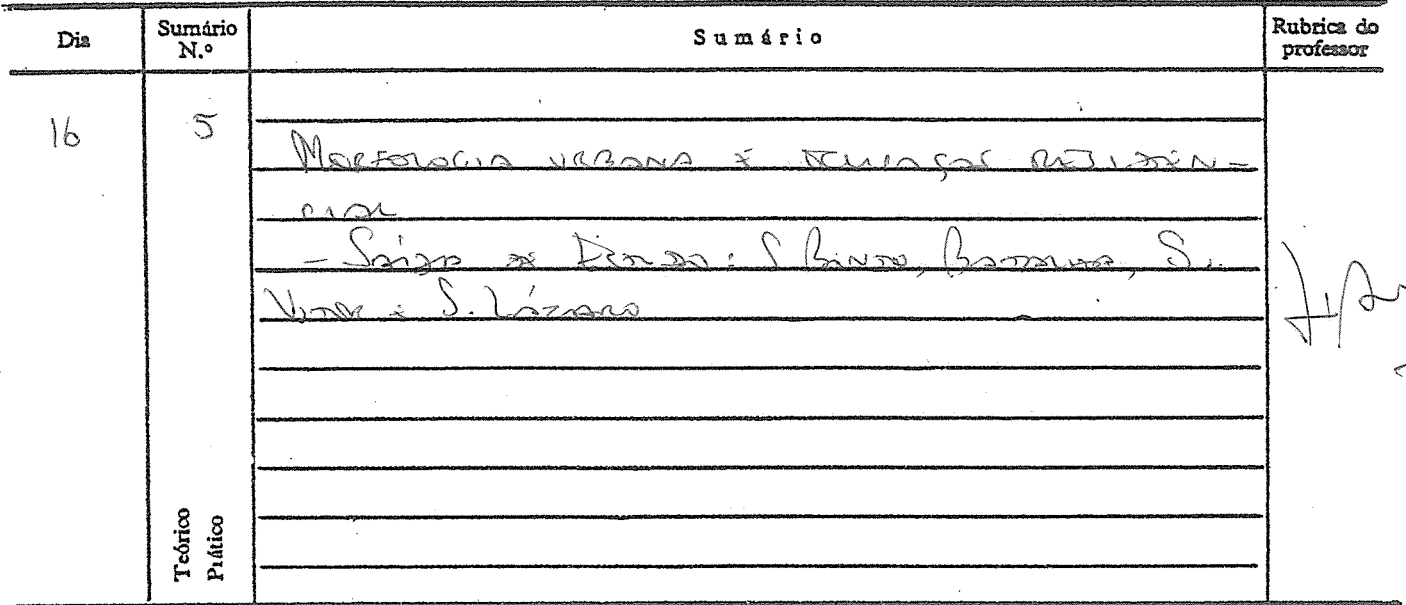 Dia
Sumário N.º
Sumário
Rubrica do professor
16
5
MORFOLOGIA URBANA E OCUPAÇÃO RESIDÊN-
CIAL
- SAÍDA DE CAMPO: S. BENTO, BATALHA, S.
VITOR E S. LÁZARO
Teórico
Prático